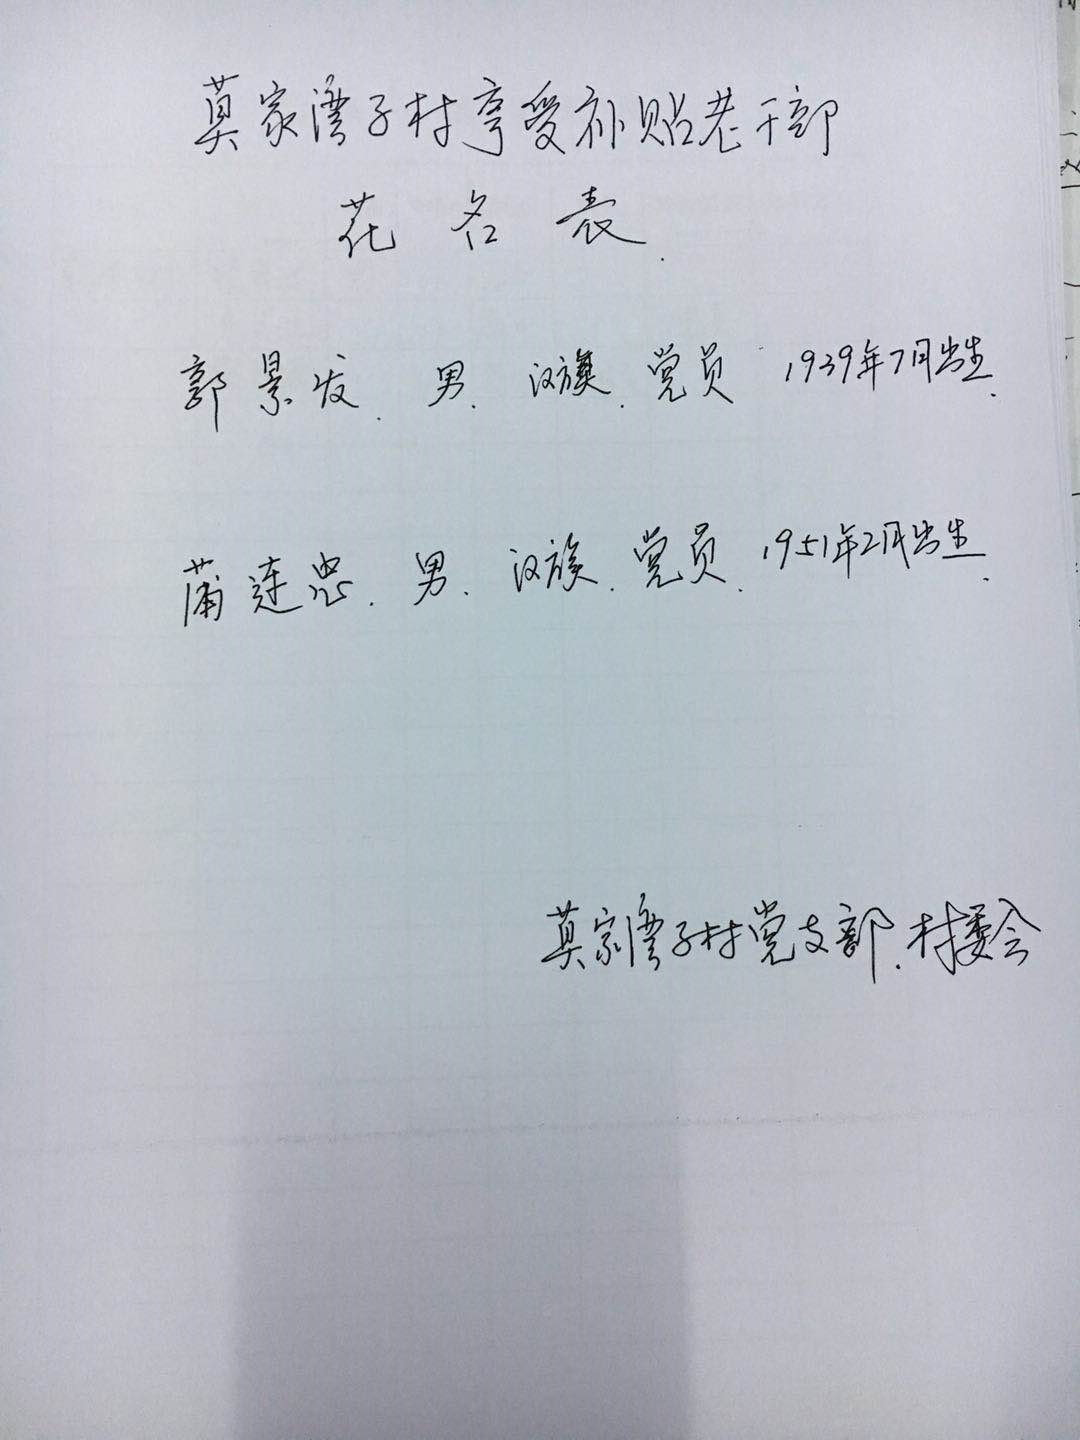 莫家湾子村享受补贴老干部
花名表.
郭景发. 男. 汉族. 党员 1939年7月出生.
蒲连忠. 男. 汉族. 党员. 1951年2月出生.
莫家湾子村党支部. 村委会